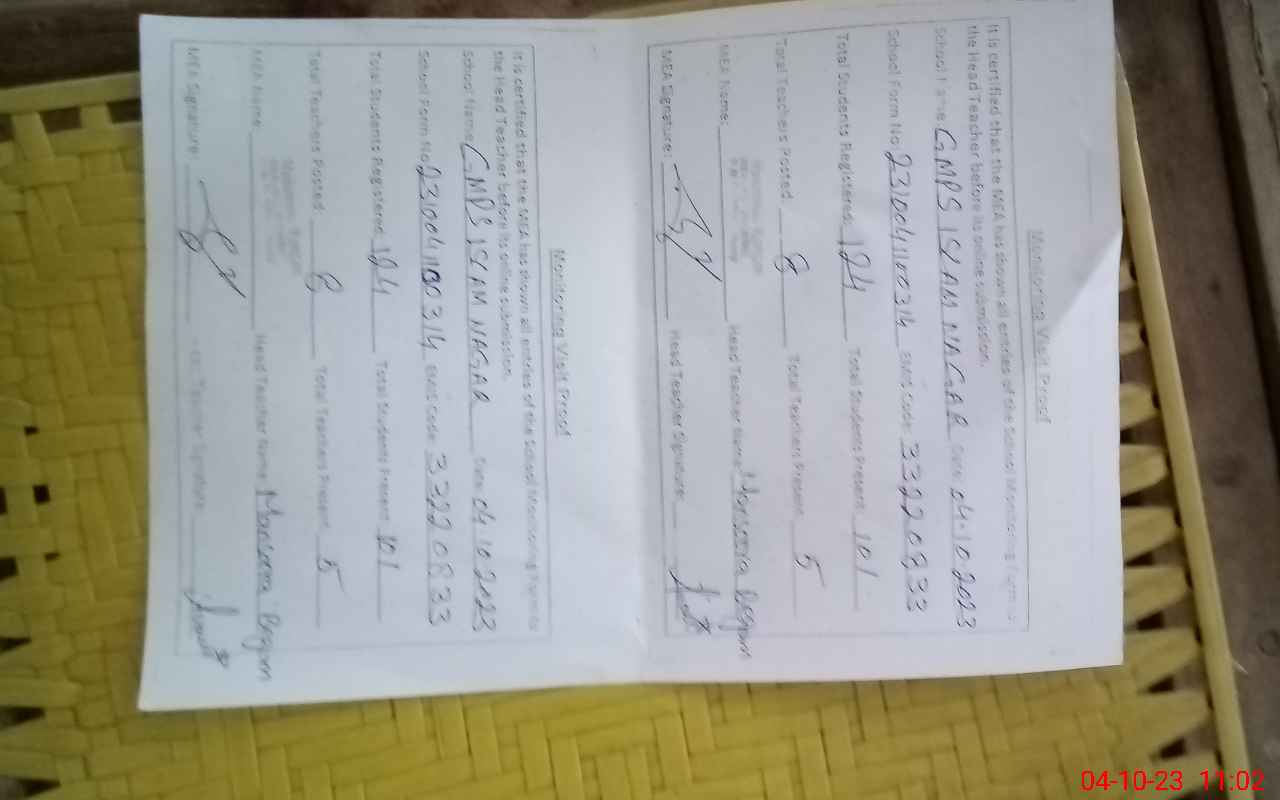 Monitoring Visit Proof
It is certified that the MEA has shown all entries of the School Monitoring Form to
the Head Teacher before its online submission.
School Name GMPS ISLAM NAGAR Date 04.10.2023
School Form No 2310041100314 EMIS Code 33220833
Total Students Registered: 124 Total Students Present 101
Total Teachers Posted 8 Total Teachers Present 5
MEA Name: Head Teacher Name Mansoora Begum
MEA Signature: Head Teacher Signature
Monitoring Visit Proof
It is certified that the MEA has shown all entries of the School Monitoring Form to
the Head Teacher before its online submission.
School Name GMPS ISLAM NAGAR Date 04.10.2023
School Form No 2310041100314 EMIS Code 33220833
Total Students Registered: 124 Total Students Present 101
Total Teachers Posted: 8 Total Teachers Present 5
MEA Name: Head Teacher Name Mansoora Begum
MEA Signature: Teacher Signature
04-10-23 11:02